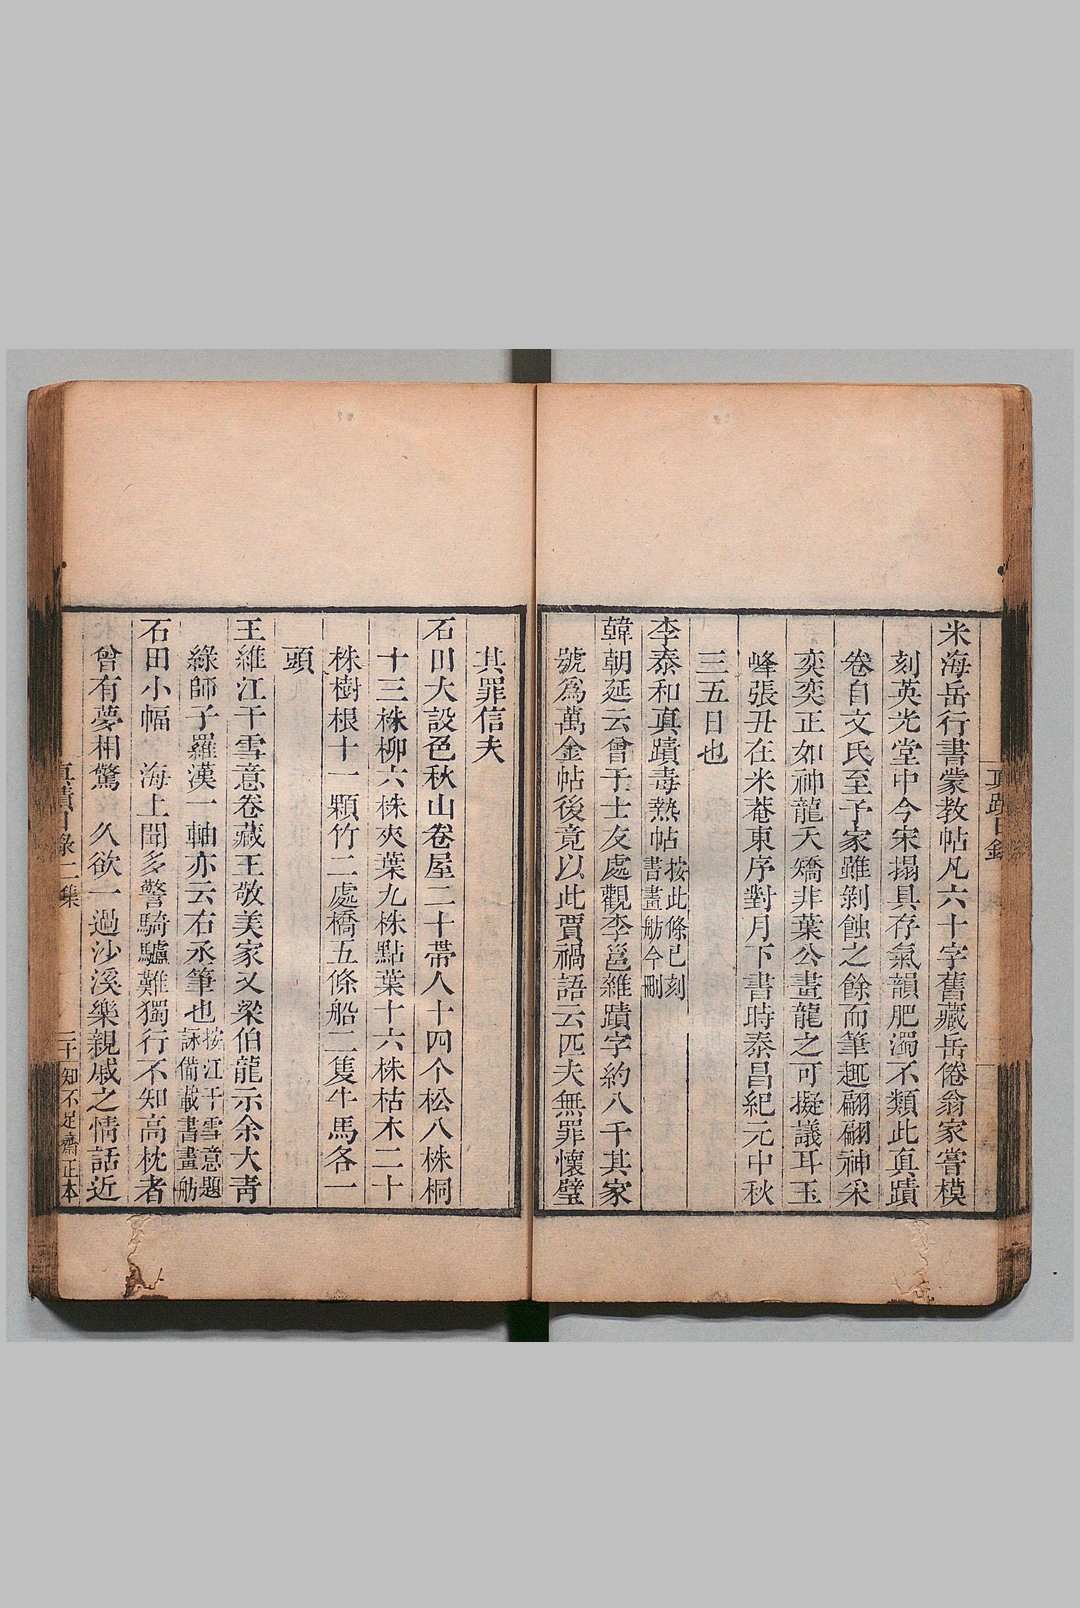 米海岳行書蒙教帖凡六十字舊藏岳倦翁家嘗模
刻英光堂中今宋搨具存氣韻肥濁不類此真蹟
卷自文氏至予家雖剝蝕之餘而筆趣翩翩神采
奕奕正如神龍夭矯非葉公畫龍之可擬議耳玉
峰張丑在米菴東序對月下書時泰昌紀元中秋
三五日也
李泰和真蹟毒熱帖按此條已刻書畫舫今刪
韓朝延云曾于士友處觀李邕雜蹟字約八千其家
號爲萬金帖後竟以此賈禍語云匹夫無罪懷璧
其罪信夫
石田大設色秋山卷屋二十帶人十四个松八株桐
十三株柳六株夾葉九株點葉十六株枯木二十
株樹根十一顆竹二處橋五條船二隻牛馬各一
頭
王維江干雪意卷藏王敬美家又梁伯龍示余大青
綠師子羅漢一軸亦云右丞筆也按江干雪意題詠備載書畫舫
石田小幅 海上聞多警騎驢難獨行不知高枕者
曾有夢相驚 久欲一過沙溪樂親戚之情話近
真蹟日錄二集 二十 知不足齋正本